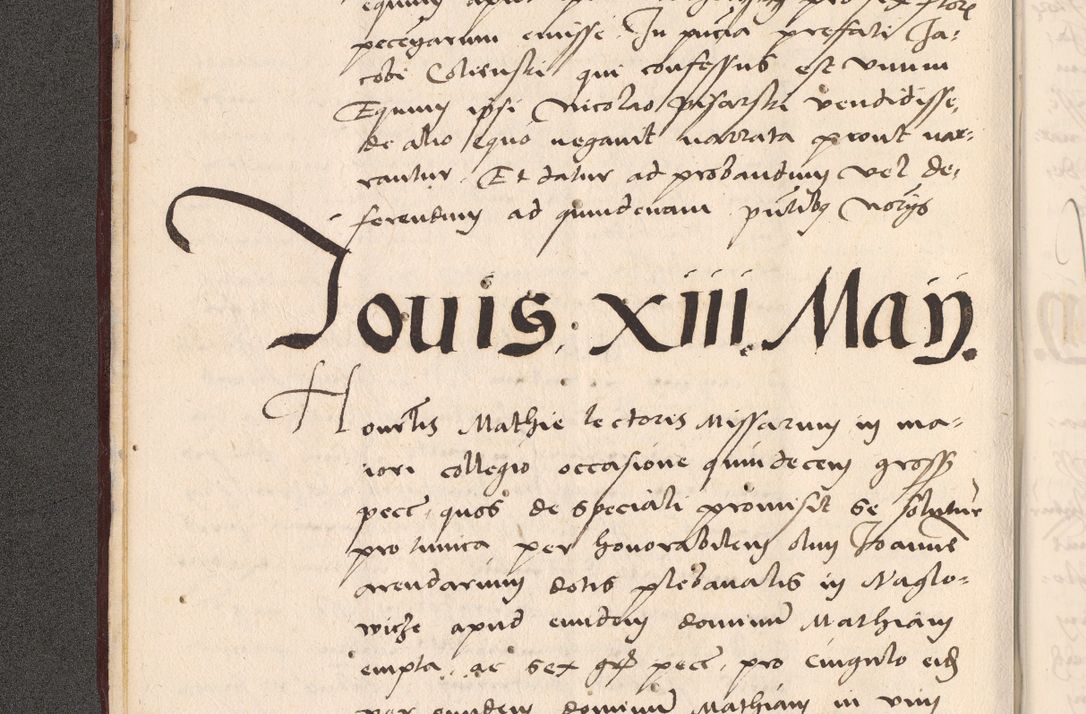 pecegarum emisse In pñcia prefati Ja-
cobi Colienski qui confessus est vnum
Equum ipsi Nicolao Pisarski vendidisse,
de alio equo negauit narrata prout nar-
rantur. Et datur ad probandum vel de-
ferendum ad quindenam
Jouis. XIII. Maij.
Mathie lectoris Missarum in ma-
iori collegio occasione quindecem gross
pecc. quos de speciali promisit se
pro tunica per honorabilem olim Joannem
arendarium dotis plebanalis in Naglo-
wicze apud eundem dominum Mathiam
empta. ac sex pecc. pro cingulo
per eundem dominum Mathiam in